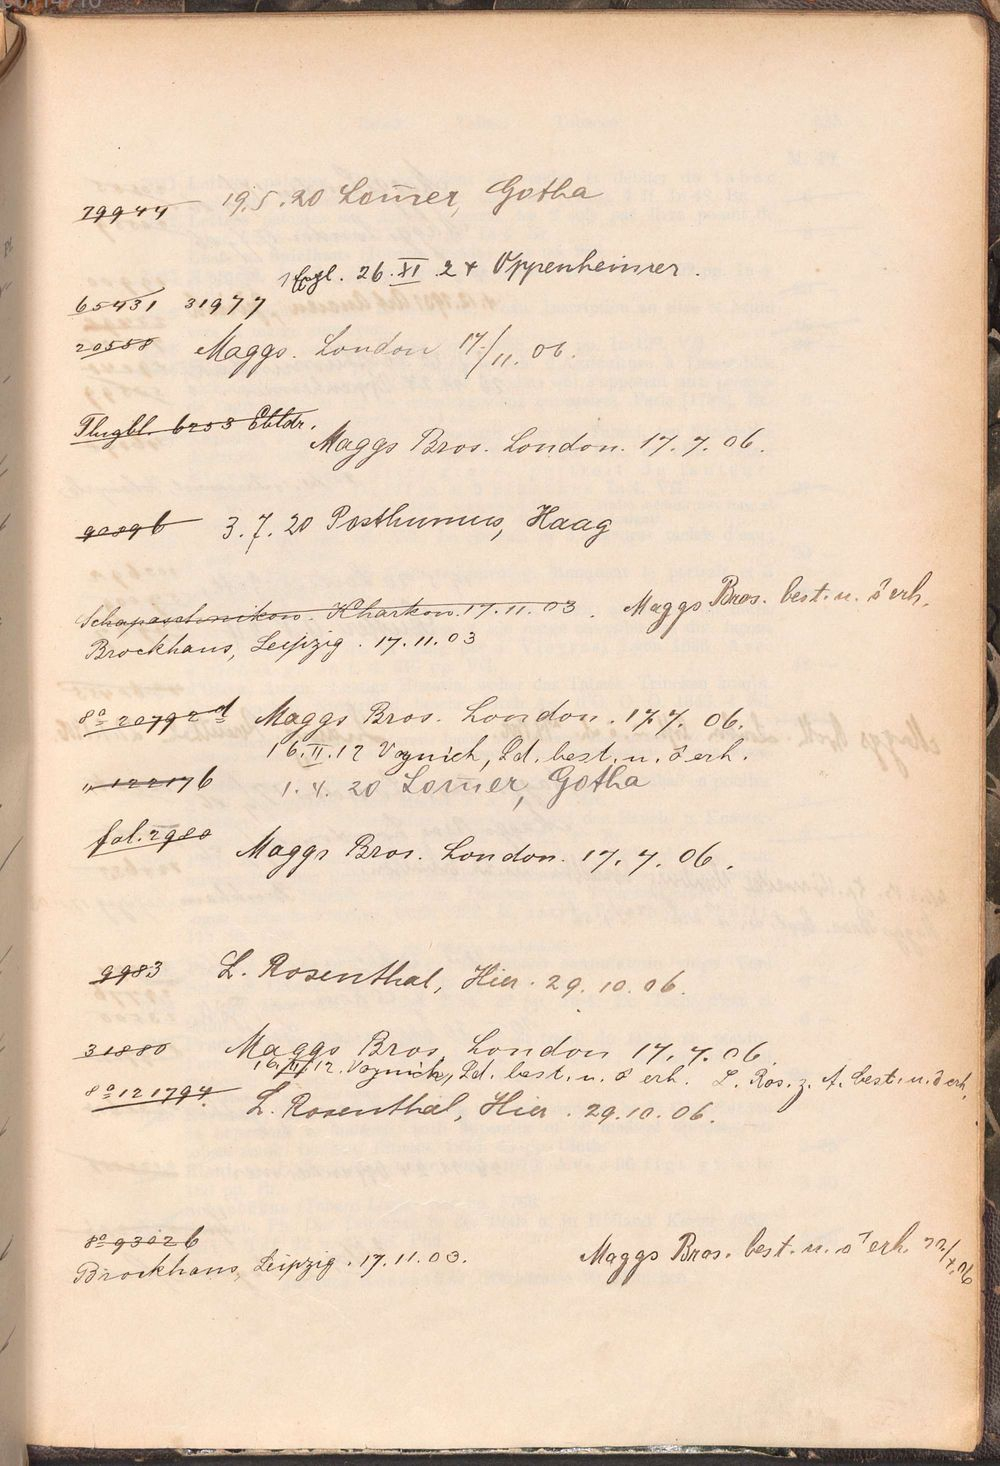 79944 19.5.20 Lom̄er, Gotha
Vgl. 26.XI.24 Oppenheimer.
65431 31977
20558 Maggs. London 17/11.06.
Flugbl. 6253 Ebldr.
Maggs Bros. London. 17.7.06.
9089b 3.7.20 Posthumus, Haag
Schapaschnikow. Kharkow. 17.11.03. Maggs Bros. best. u. ō erh.
Brockhaus, Leipzig. 17.11.03
8º 20792d Maggs Bros. London. 17.7.06.
16.II.12 Voynich, Ld. best. u. ō erh.
" 12217b 1.4.20 Lom̄er, Gotha
fol. 2980 Maggs Bros. London. 17.7.06.
9983 L. Rosenthal, Hier. 29.10.06.
31880 Maggs Bros. London 17.7.06.
16/II/12. Voynich, Ld. best. u. ō erh. L. Ros. z. A. best. u. ō erh.
8º 121794. L. Rosenthal, Hier. 29.10.06.
8º 9302b
Brockhaus, Leipzig. 17.11.03. Maggs Bros. best. u. ō erh.